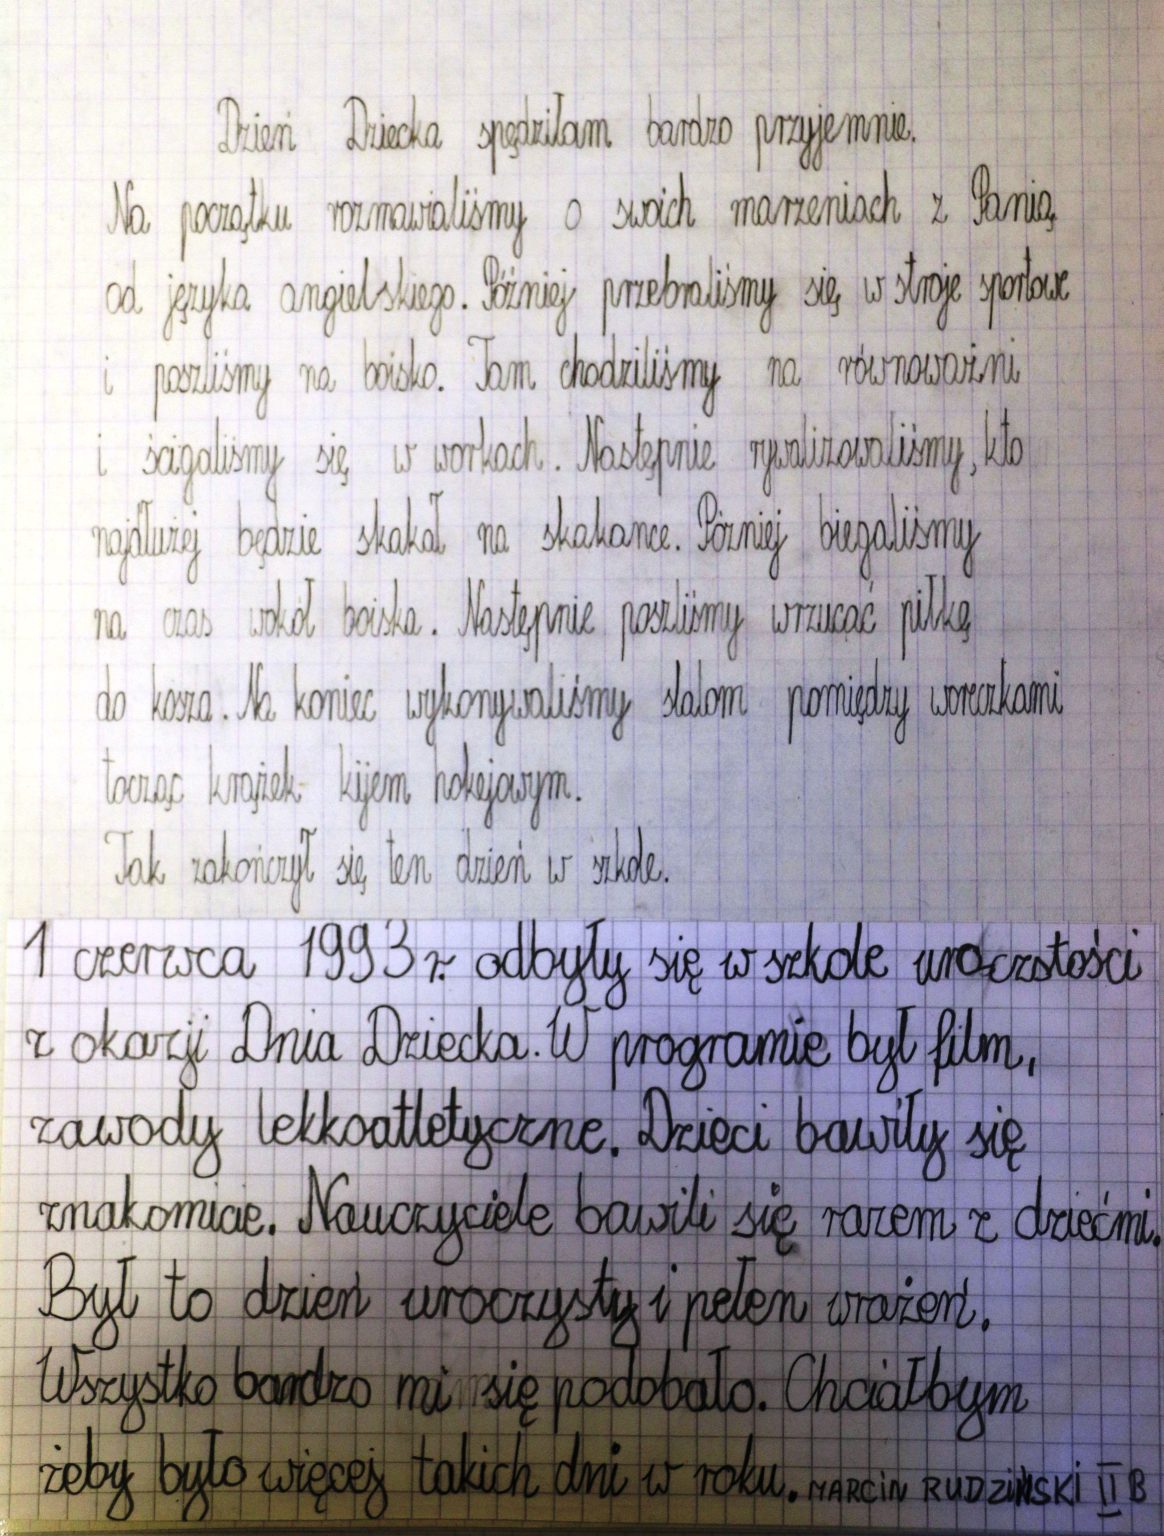 Dzień Dziecka spędziłam bardzo przyjemnie.
Na początku rozmawialiśmy o swoich marzeniach z Panią
od języka angielskiego. Później przebraliśmy się w stroje sportowe
i poszliśmy na boisko. Tam chodziliśmy na równoważni
i ścigaliśmy się w workach. Następnie rywalizowaliśmy, kto
najdłużej będzie skakał na skakance. Pózniej biegaliśmy
na czas wokół boiska. Następnie poszliśmy wrzucać piłkę
do kosza. Na koniec wykonywaliśmy slalom pomiędzy woreczkami
tocząc krążek kijem hokejowym.
Tak zakończył się ten dzień w szkole.
1 czerwca 1993 r. odbyły się w szkole uroczstości
z okazji Dnia Dziecka. W programie był film,
zawody lekkoatletyczne. Dzieci bawiły się
znakomicie. Nauczyciele bawili się razem z dziećmi.
Był to dzień uroczysty i pełen wrażeń.
Wszystko bardzo mi się podobało. Chciałbym
żeby było więcej takich dni w roku. MARCIN RUDZIŃSKI II B